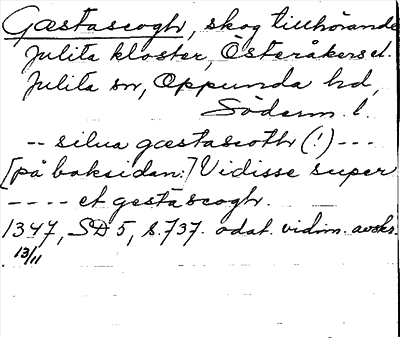 Gæstascogh, skog tillhörande
Julita kloster, Österåkers el.
Julita sn, Oppunda hd,
Söderm. l.
-- silua gæstascoth (!) ---
[på baksidan:] Vidisse super
---- et gestascogh.
1347, SD 5, s. 737. odat. vidim. avskr.
13/11